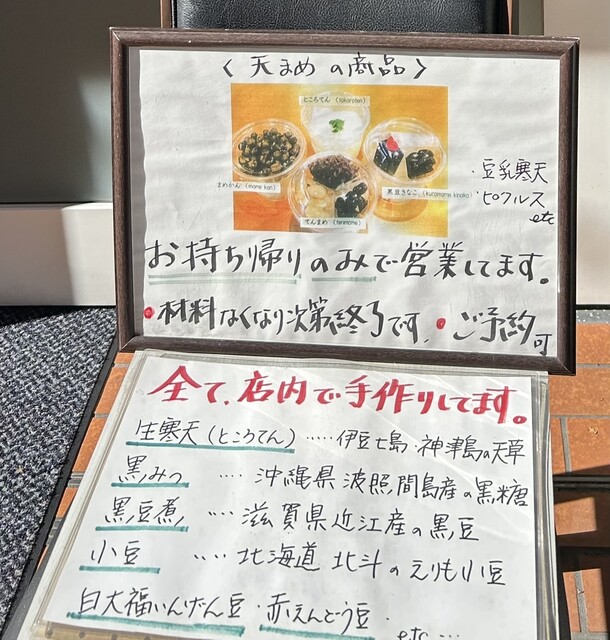 〈 天まめ の商品 〉
ところてん (tokoroten)
まめかん (mame kan)
黒豆きなこ (kuromame kinako)
てんまめ (tenmame)
・豆乳寒天
・ピクルス
etc
お持ち帰りのみで営業してます。
●材料なくなり次第終了です。●ご予約可
全て、店内で手作りしてます。
生寒天(ところてん)‥‥‥伊豆七島・神津島の天草
黒みつ ‥‥ 沖縄県 波照間島産の黒糖
黒豆煮 ‥‥ 滋賀県近江産の黒豆
小豆 ‥‥ 北海道 北斗のえりも小豆
白大福いんげん豆・赤えんどう豆・
etc ‥‥